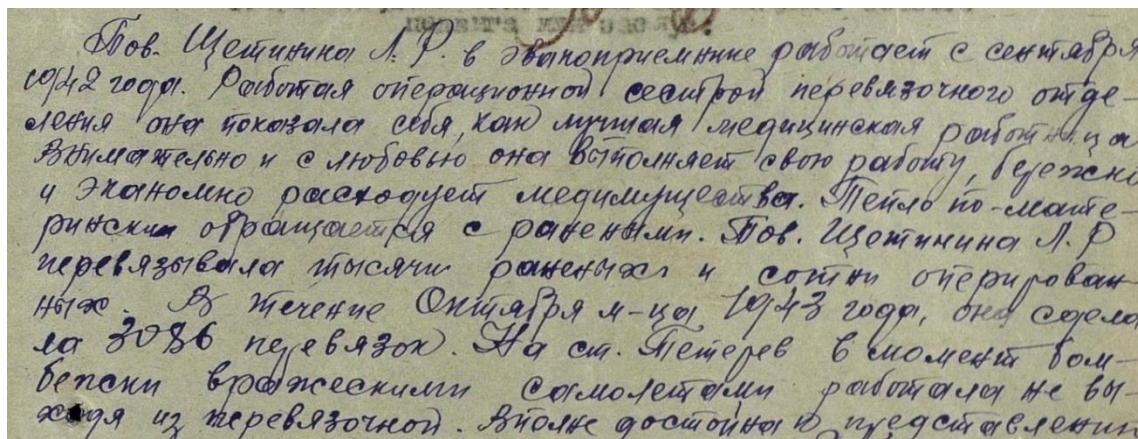 Тов. Щетинина Л.Р. в эвакоприемнике работает с сентября
1942 года. Работая операционной сестрой перевязочного отде-
ления она показала себя, как лучшая медицинская работница
Внимательно и с любовью она выполняет свою работу, бережно
и экономно расходует медимущества. Тепло по-мате-
рински обращается с ранеными. Тов. Щетинина Л.Р
перевязывала тысячи раненых и сотни оперирован
ных. В течение Октября м-ца 1943 года, она сдела
ла 3086 перевязок. На ст. Тетерев в момент бом-
бежки вражескими самолетами работала не вы-
ходя из перевязочной. Вполне достойна к представлению